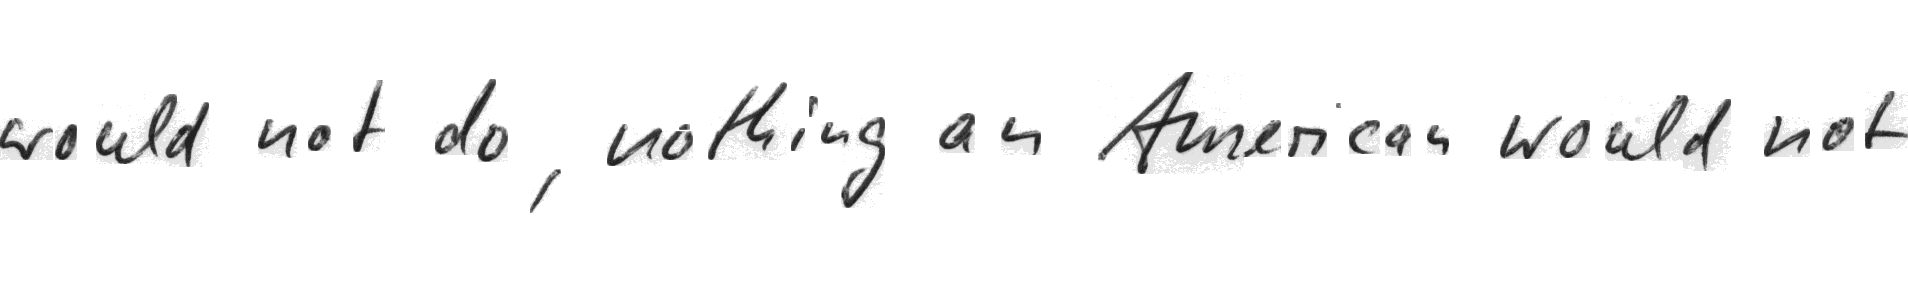 would not do, nothing an American would not